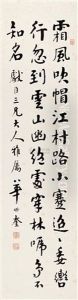 霜風吹帽江村路小蹇迢迢委轡
行忽到雲山幽絕處穿林啼鳥不
知名 三兄大人雅屬 華世奎